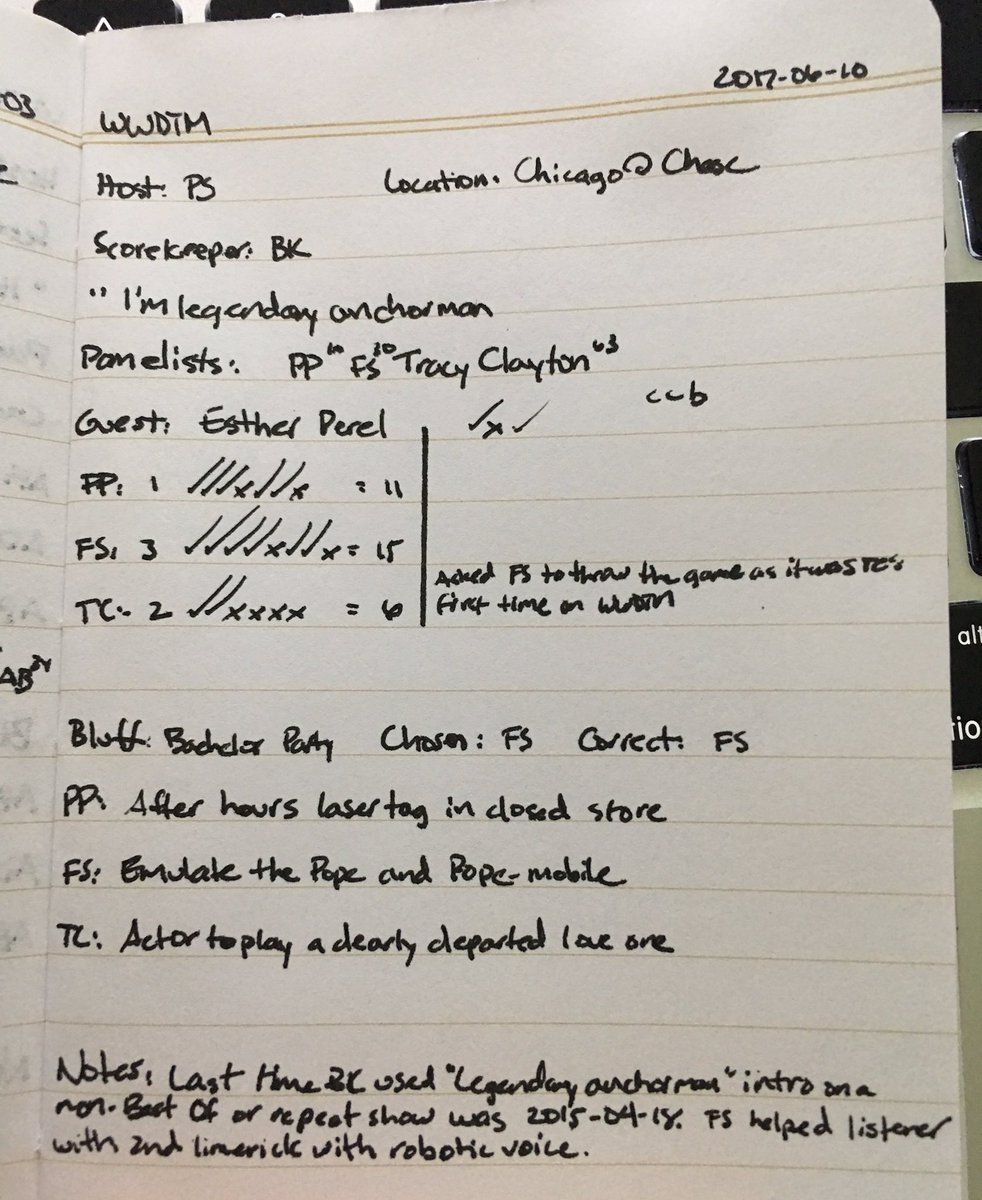 2017-06-10
03
WWDTM
Host: PS Location: Chicago @ Chase
Scorekeeper: BK
" I'm legendary anchorman
Panelists: PP FS Tracy Clayton
ccb
Guest: Esther Perel ✓x✓
PP: 1 ✓✓✓x✓✓x = 11
FS: 3 ✓✓✓✓x✓✓x = 15
Asked FS to throw the game as it was TC's
TC: 2 ✓✓xxxx = 6 first time on WWDTM
AB
Bluff: Bachelor Party Chosen: FS Correct: FS
PP: After hours laser tag in closed store
FS: Emulate the Pope and Pope-mobile
TC: Actor to play a dearly departed love one
Notes: Last time BK used "Legendary anchorman" intro on a
non-Best Of or repeat show was 2015-04-18. FS helped listener
with 2nd limerick with robotic voice.
alt